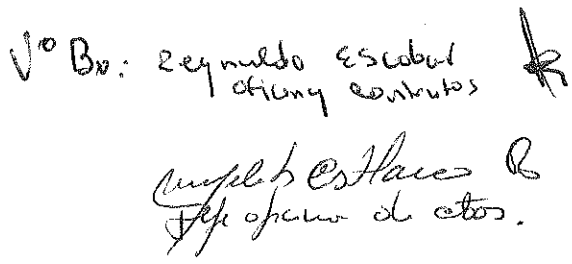 V° Bo: Reynaldo Escobar
oficina contratos
Castaneda B
Jefe oficina de ctos.